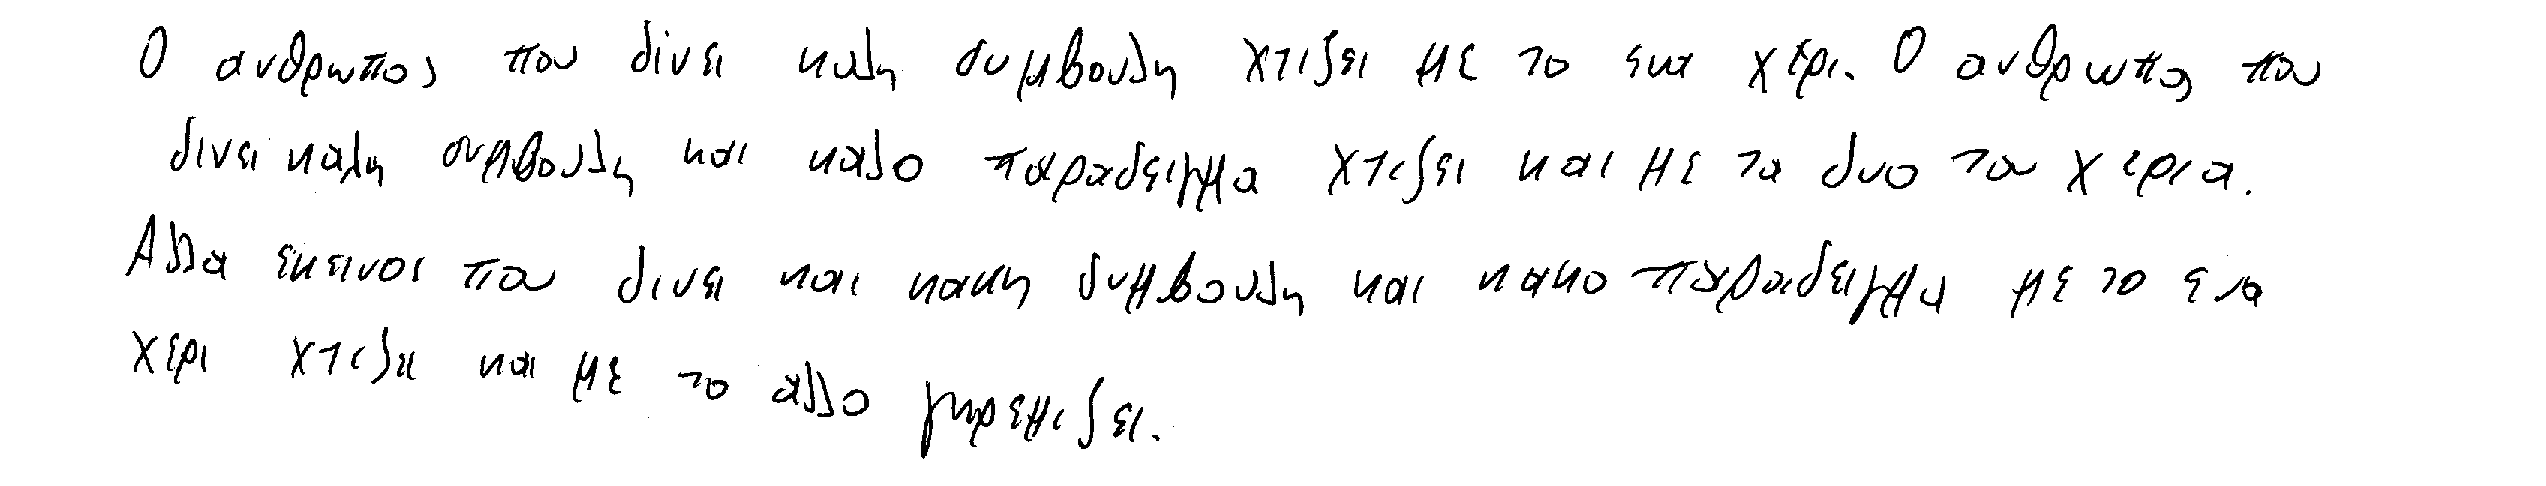 Ο ανθρωπος που δίνει καλη συμβουλη χτιζει με το ενα χέρι. Ο ανθρωπος που
δινει καλη συμβουλη και καλο παραδειγμα χτιζει και με τα δυο του χερια.
Αλλα εκεινος που δινει και κακη συμβουλη και κακο παραδειγμα με το ενα
χερι χτιζει και με το αλλο γκρεμιζει.